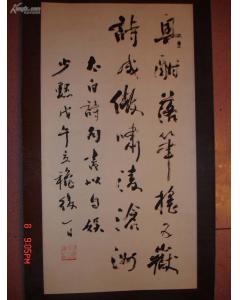 興酣落筆搖五嶽
詩成傲嘯凌滄洲
太白詩句書以自娱
步黙戊午立穐後一日
8 9:05PM